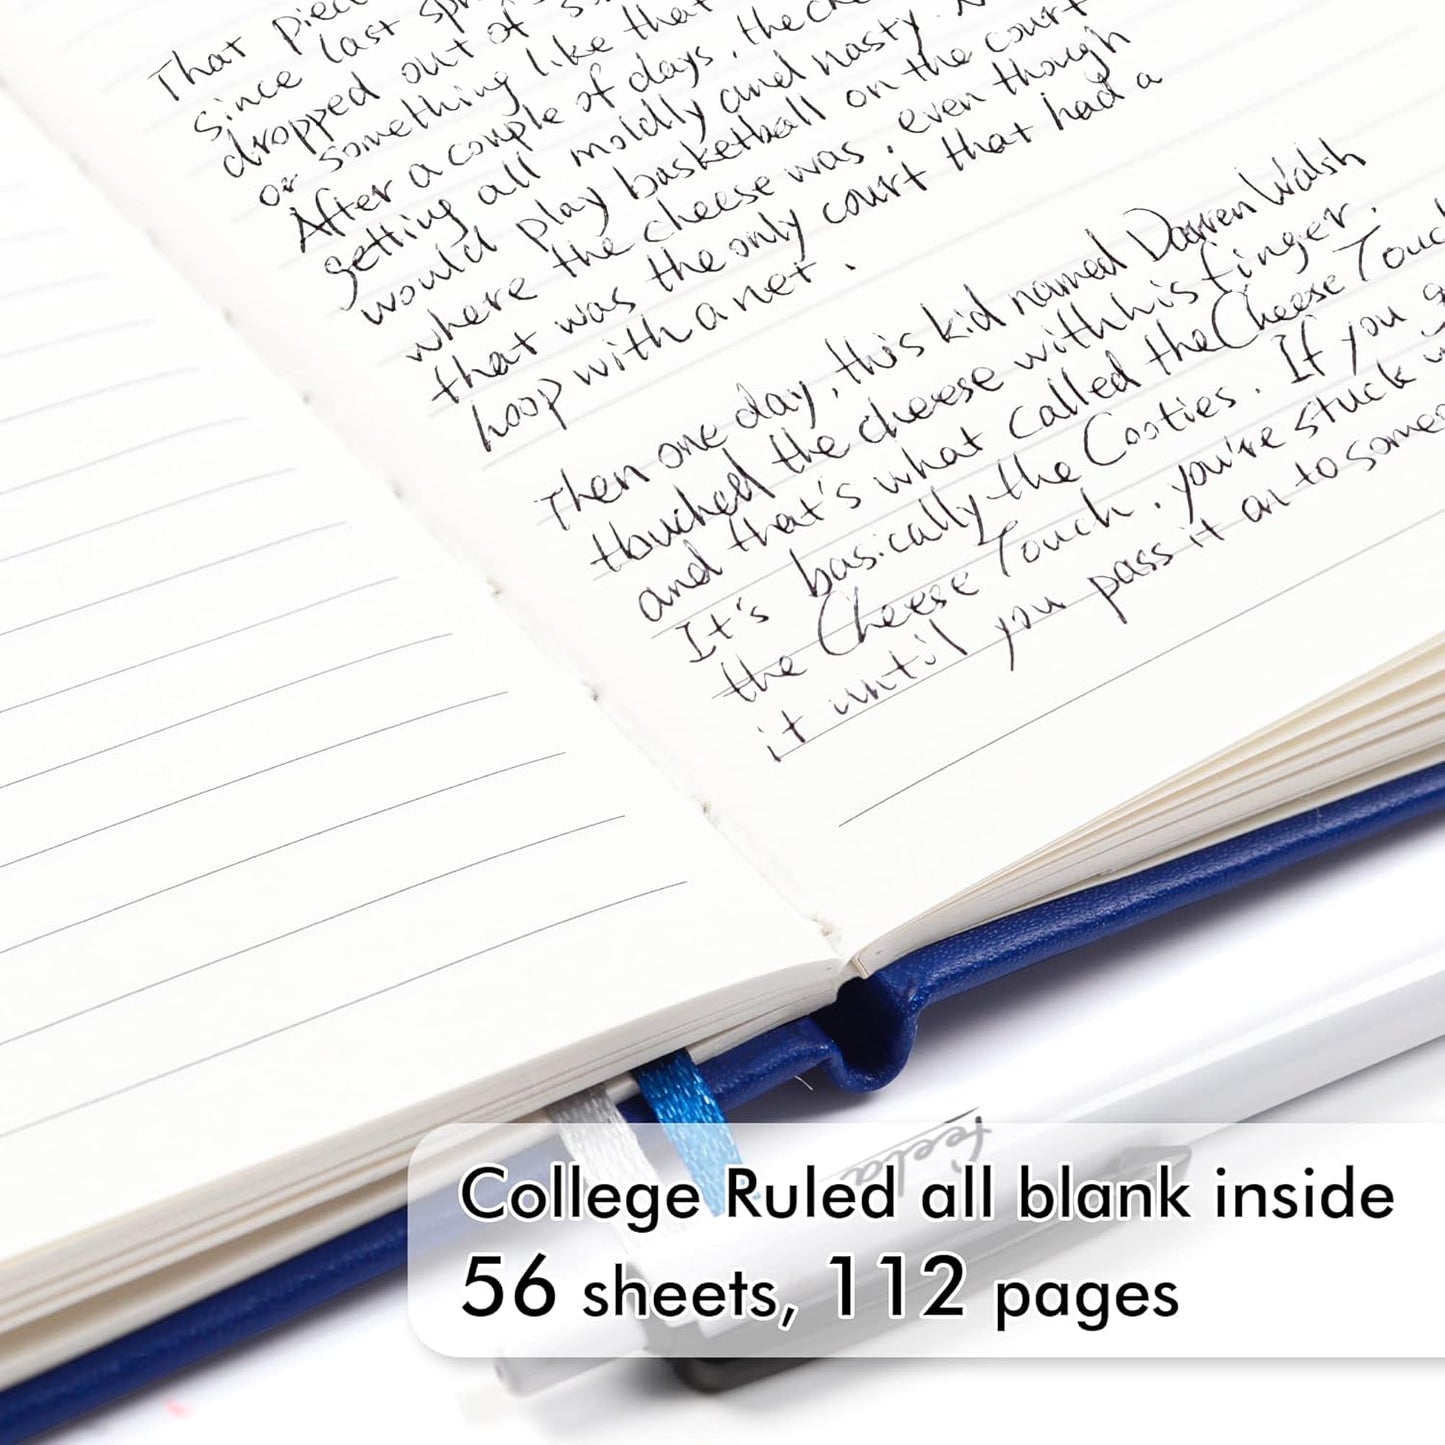 That piec
since last sp
dropped out of s
or something like that
After a couple of days, the che
getting all moldly and nasty. N
would play basketball on the court
where the cheese was, even though
that was the only court that had a
hoop with a net.
Then one day, this kid named Darren Walsh
touched the cheese with his finger.
and that's what called the Cheese Touch
It's basically the Cooties. If you g
the Cheese Touch. you're stuck w
it until you pass it on to someo
feela
College Ruled all blank inside
56 sheets, 112 pages